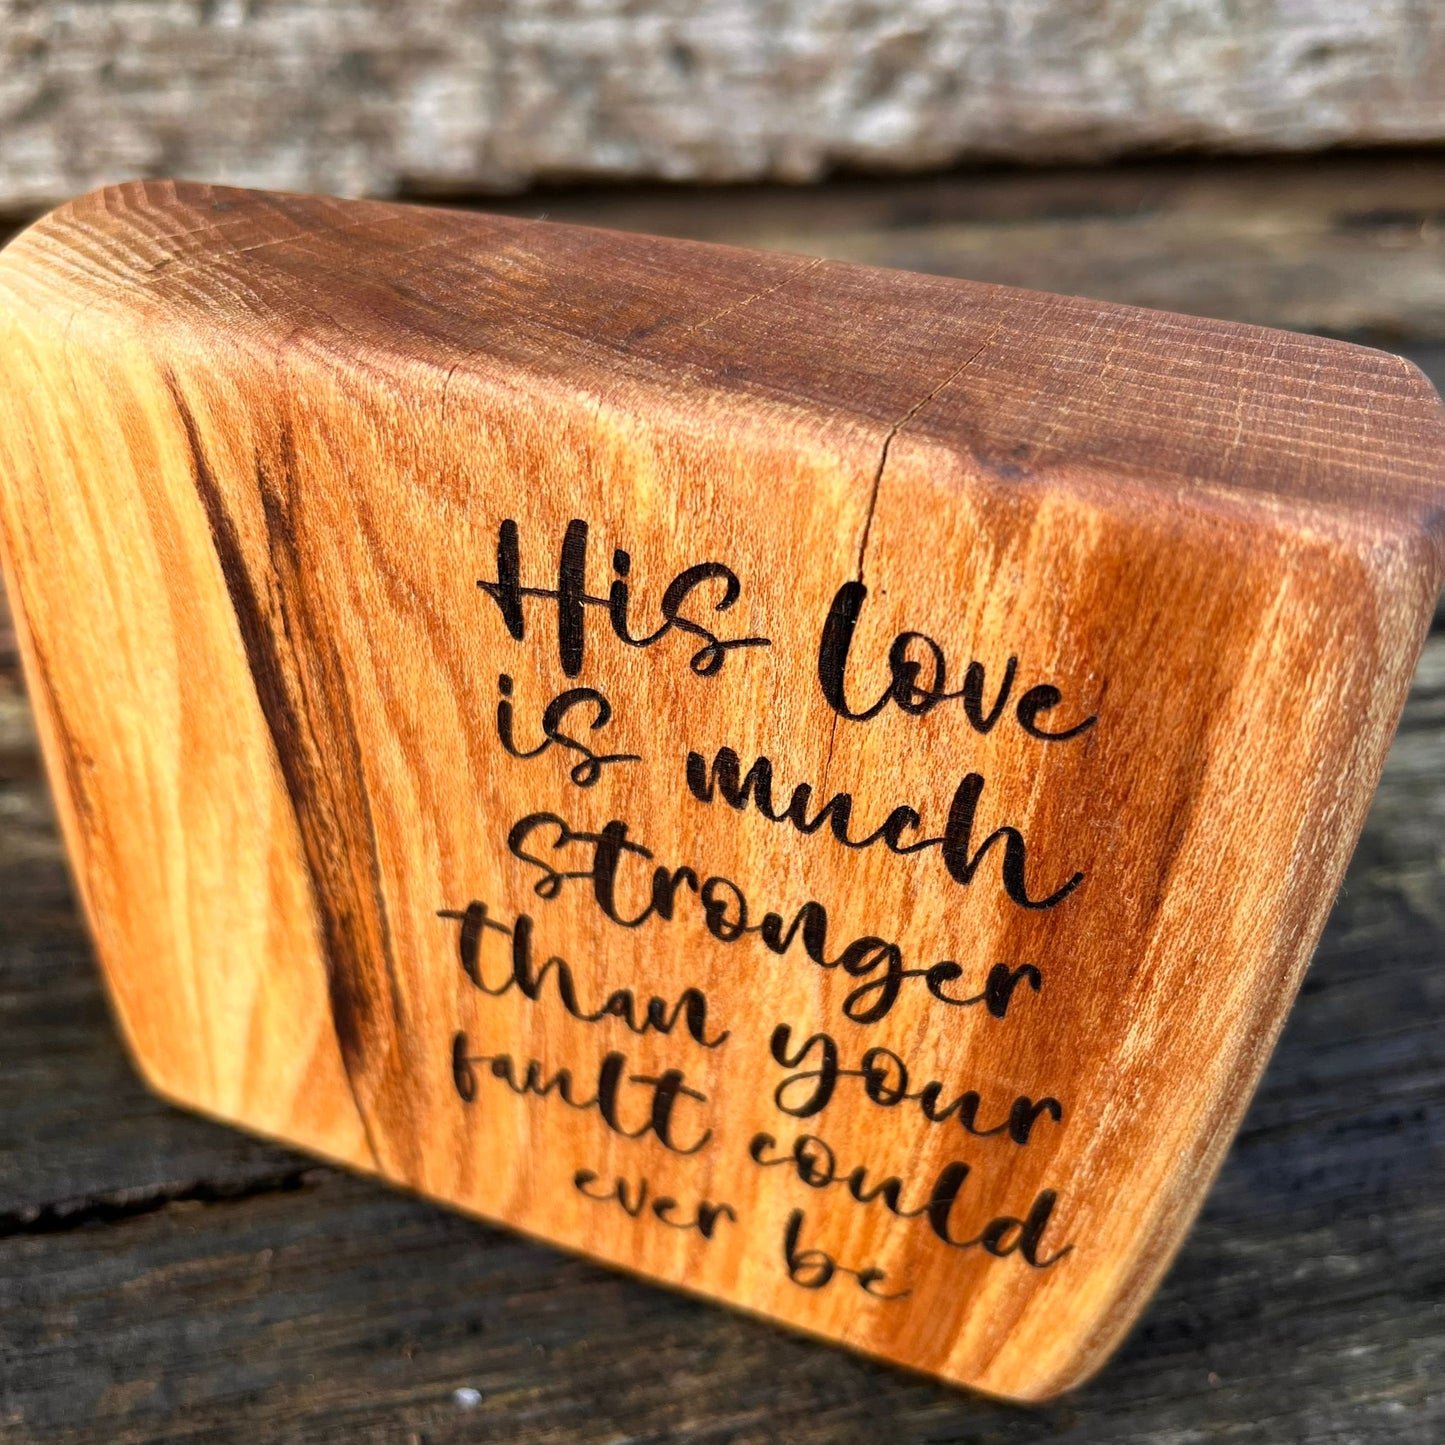 His love
is much
stronger
than your
fault could
ever be